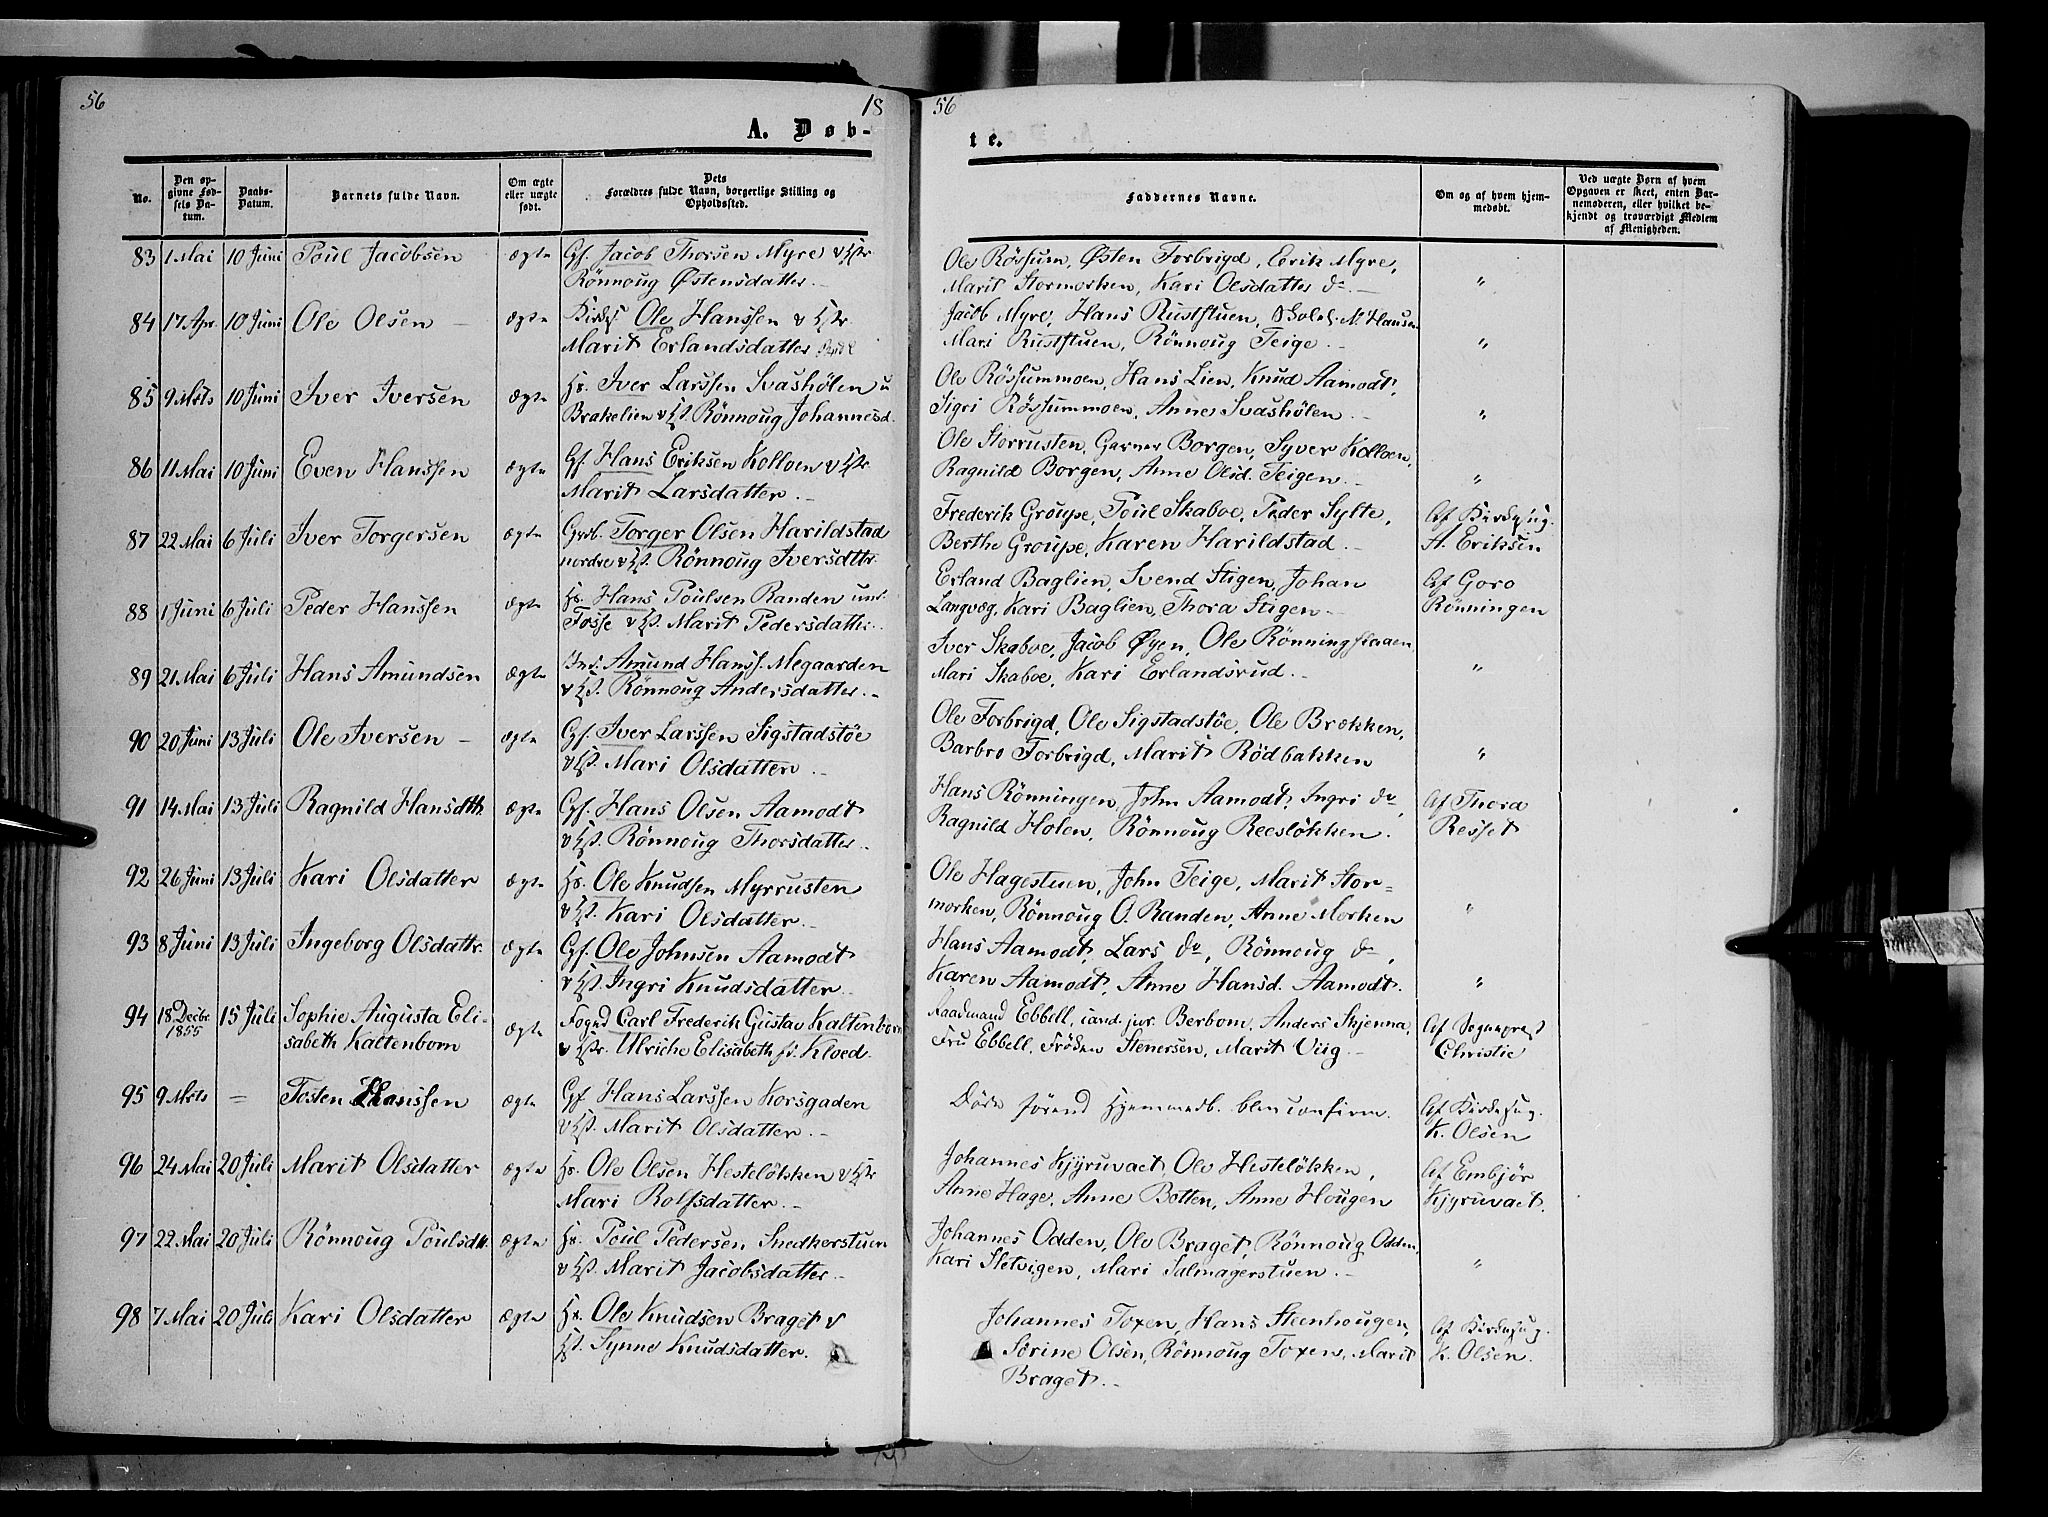 56
18
A. Døb-
No.
Den op-
givne Fød-
sels Da-
tum.
Daabs-
Datum.
Barnets fulde Navn.
Om ægte
eller uægte
født.
Dets
Forældres fulde Navn, borgerlige Stilling og
Opholdssted.
83 1 Mai 10 Juni Poul Jacobsen ægte Gf. Jacob Thorsen Myre & Hstr
Rönnoug Østensdatter.
84 17 Apr. 10 Juni Ole Olsen – ægte Kirkes. Ole Hanssen & Hstr
Marit Erlandsdatter
85 9 Mrts 10 Juni Iver Iversen ægte Hs. Iver Larssen Svashölen u
Brakelien & Hst. Rönnoug Johannesd.
86 11 Mai 10 Juni Even Hanssen ægte Gf. Hans Eriksen Kolloen & Hstr
Marit Larsdatter. –
87 22 Mai 6 Juli Iver Torgersen ægte Gvb. Torger Olsen Harildstad
nordre & Hst. Rönnoug Iversdttr.
88 1 Juni 6 Juli Peder Hanssen ægte Hs. Hans Poulsen Randen und.
Fosse & Hst. Marit Pedersdatter.
89 21 Mai 6 Juli Hans Amundsen ægte Ins. Amund Hanss. Megaarden
& Hst. Rönnoug Andersdatter. –
90 20 Juni 13 Juli Ole Iversen – ægte Gf. Iver Larssen Sigstadstöe
& Hst. Mari Olsdatter. –
91 14 Mai 13 Juli Ragnild Hansdttr. ægte Gf. Hans Olsen Aamodt
& Hst. Rönnoug Thorsdatter. –
92 26 Juni 13 Juli Kari Olsdatter ægte Hs. Ole Knudsen Myrrusten
& Hst. Kari Olsdatter. –
93 8 Juni 13 Juli Ingeborg Olsdattr. ægte Gf. Ole Johnsen Aamodt
& Hst. Ingri Knudsdatter. –
94 18 Decbr 1855 15 Juli Sophie Augusta Eli-
sabeth Kaltenborn ægte Fogd Carl Frederik Gustav Kaltenborn
& Hstr. Ulriche Elisabeth fd. Kloed.
95 9 Mrts = Tosten Hanssen ægte Gf. Hans Larssen Korsgaden
& Hst. Marit Olsdatter. –
96 24 Mai 20 Juli Marit Olsdatter ægte Hs. Ole Olsen Hestelökken & Hstr
Mari Rolfsdatter. –
97 22 Mai 20 Juli Rönnoug Poulsdtr. ægte Hs. Poul Pedersen Snedkerstuen
& Hst. Marit Jacobsdatter. –
98 7 Mai 20 Juli Kari Olsdatter ægte Hs. Ole Knudsen Braget &
Hst. Synne Knudsdatter.
56
te.
Faddernes Navne.
Om og af hvem hjem-
medøbt.
Ved uægte Børn af hvem
Opgaven er skeet, enten Bar-
nemoderen, eller hvilket be-
kjendt og troværdigt Medlem
af Menigheden.
Ole Rössum, Østen Forbrigd, Erik Myre,
Marit Stormorken, Kari Olsdatter do. – "
Jacob Myre, Hans Ruststuen, Skolel. N. Hansen
Mari Ruststuen, Rönnoug Teige. – "
Ole Rössummoen, Hans Lien, Knud Aamodt,
Sigri Rössummoen, Anne Svashölen. – "
Ole Storrusten, Garner Borgen, Syver Kolloen,
Ragnild Borgen, Anne Olsd. Teigen. – "
Frederik Groupe, Poul Skaboe, Peder Sylte, Af Kirkesug.
Berthe Groupe, Karen Harildstad. – H. Eriksen
Erland Baglien, Svend Stigen, Johan Af Goro
Langvæg, Kari Baglien, Thora Stigen – Rönningen
Iver Skaboe, Jacob Øyen, Ole Rönningslaaen
Mari Skaboe, Kari Erlandsrud. – "
Ole Forbrigd, Ole Sigstadstöe, Ole Brækken,
Barbro Forbrigd, Marit Rödbakken "
Hans Rönningen, John Aamodt, Ingri do, Af Thora
Ragnild Holen, Rönnoug Reeslökken. Resset
Ole Hagestuen, John Teige, Marit Stor=
morken, Rönnoug O. Randen, Anne Morken "
Hans Aamodt, Lars do, Rönnoug do,
Karen Aamodt, Anne Hansd. Aamodt. "
Raadmand Ebbell, cand. jur. Berbom, Anders Skjenna, Af Sognepræst
Fru Ebbell, Fröken Stenersen, Marit Viig. – Christie
Döde förend Hjemmedb. blev confirm. Af Kirkesug.
K. Olsen
Johannes Kjyruvaet, Ole Hestelökken, Af Embjör
Anne Hage, Anne Botten, Anne Hougen Kjyruvaet.
Johannes Odden, Ole Braget, Rönnoug Odden,
Kari Sletvigen, Mari Salmagerstuen. – "
Johannes Toxen, Hans Steenhougen, Af Kirkesug.
Serine Olsen, Rönnoug Toxen, Marit K. Olsen.
Braget. –